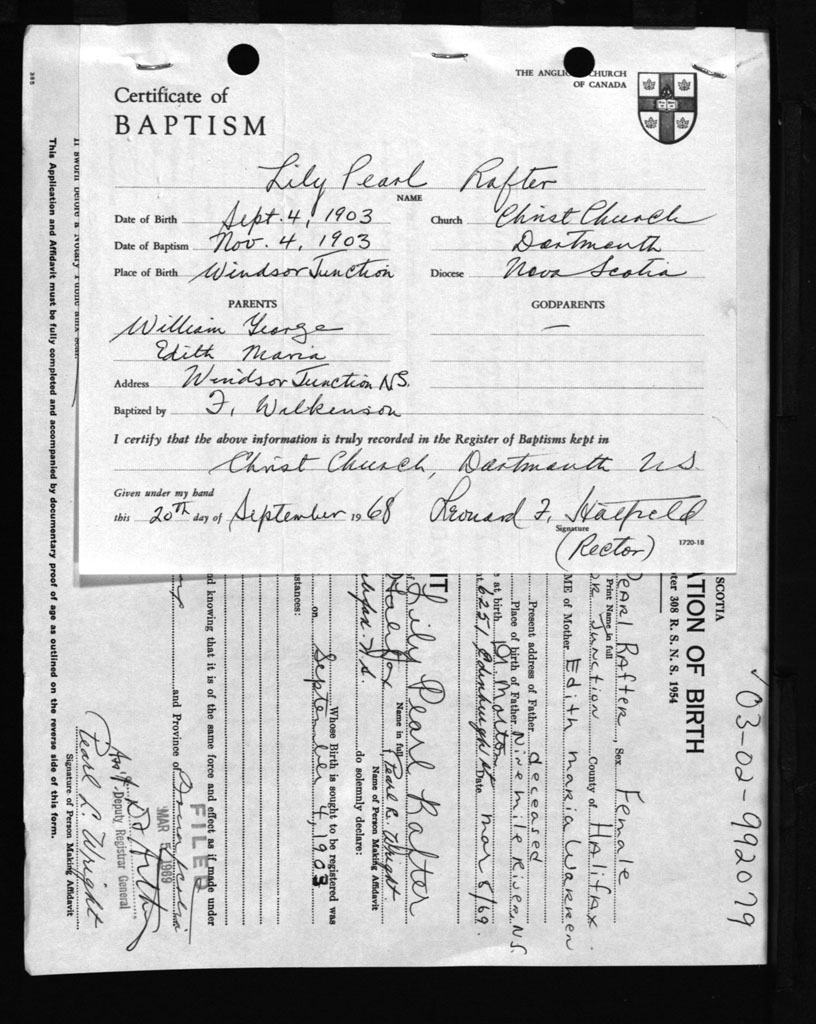 THE ANGLICAN CHURCH
OF CANADA
Certificate of
BAPTISM
Lily Pearl Rafter
NAME
Date of Birth Sept. 4, 1903
Church Christ Church
Date of Baptism Nov. 4, 1903
Dartmouth
Place of Birth Windsor Junction
Diocese Nova Scotia
PARENTS
GODPARENTS
William George
—
Edith Maria
Address Windsor Junction NS.
Baptized by F. Wilkenson
I certify that the above information is truly recorded in the Register of Baptisms kept in
Christ Church, Dartmouth N.S.
Given under my hand
this 20th day of September 1968
Leonard F. Hatfield
Signature
(Rector)
1720-18
03-02-992079
SCOTIA
ATION OF BIRTH
ter 308 R. S. N. S. 1954
Pearl Rafter, Sex Female
Print Name in full
Junction County of Halifax
ME of Mother Edith Maria Warren
Present address of Father deceased
Place of birth of Father Nine mile River, N.S.
at birth Dr. Morton
6251 Edinburgh St Date Mar 5/69.
IT
Lily Pearl Rafter
Name in full
Halifax Pearl L. Wright
Name of Person Making Affidavit
Halifax N.S. do solemnly declare:
Whose Birth is sought to be registered was
on September 4, 1903
stances:
nd knowing that it is of the same force and effect as if made under
and Province of Nova Scotia
FILED
MAR 5 1969
Deputy Registrar General
Pearl L. Wright
Signature of Person Making Affidavit
If sworn before a Notary Public affix Seal.
This Application and Affidavit must be fully completed and accompanied by documentary proof of age as outlined on the reverse side of this form.
385